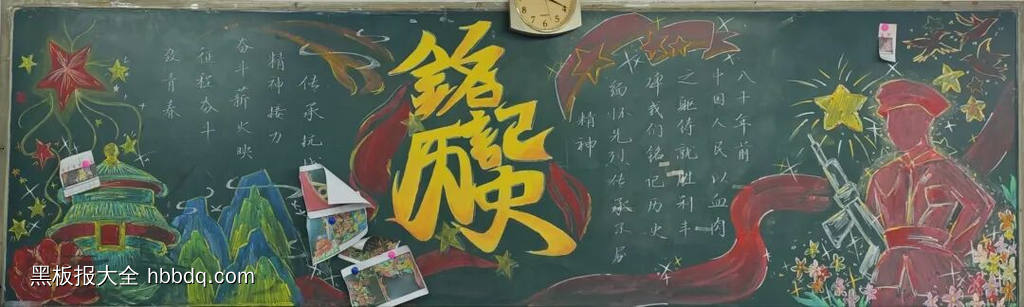 銘記
历史
八十年前
中国人民以血肉
之躯铸就胜利丰
碑我们铭记历史
缅怀先烈传承
精神
传承抗
精神接力
奋斗薪火映
征程奋斗
致青春
黑板报大全 hbbdq.com